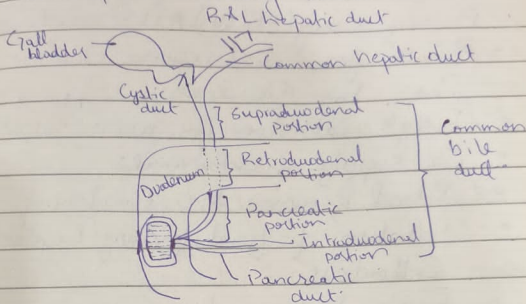 R & L hepatic duct
Gall
bladder
Common hepatic duct
Cystic
duct
Supraduodenal
portion
Common
bile
duct
Duodenum
Retroduodenal
portion
Pancreatic
portion
Intraduodenal
portion
Pancreatic
duct